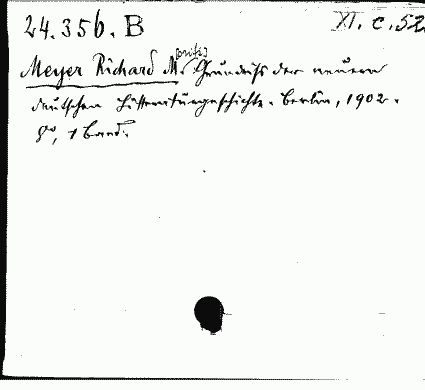 24.356.B
XI. C. 52.
[oritz]
Meyer Richard M. Grundriß der neuern
deutschen Litteraturgeschichte. Berlin, 1902.
8°, 1 Band.